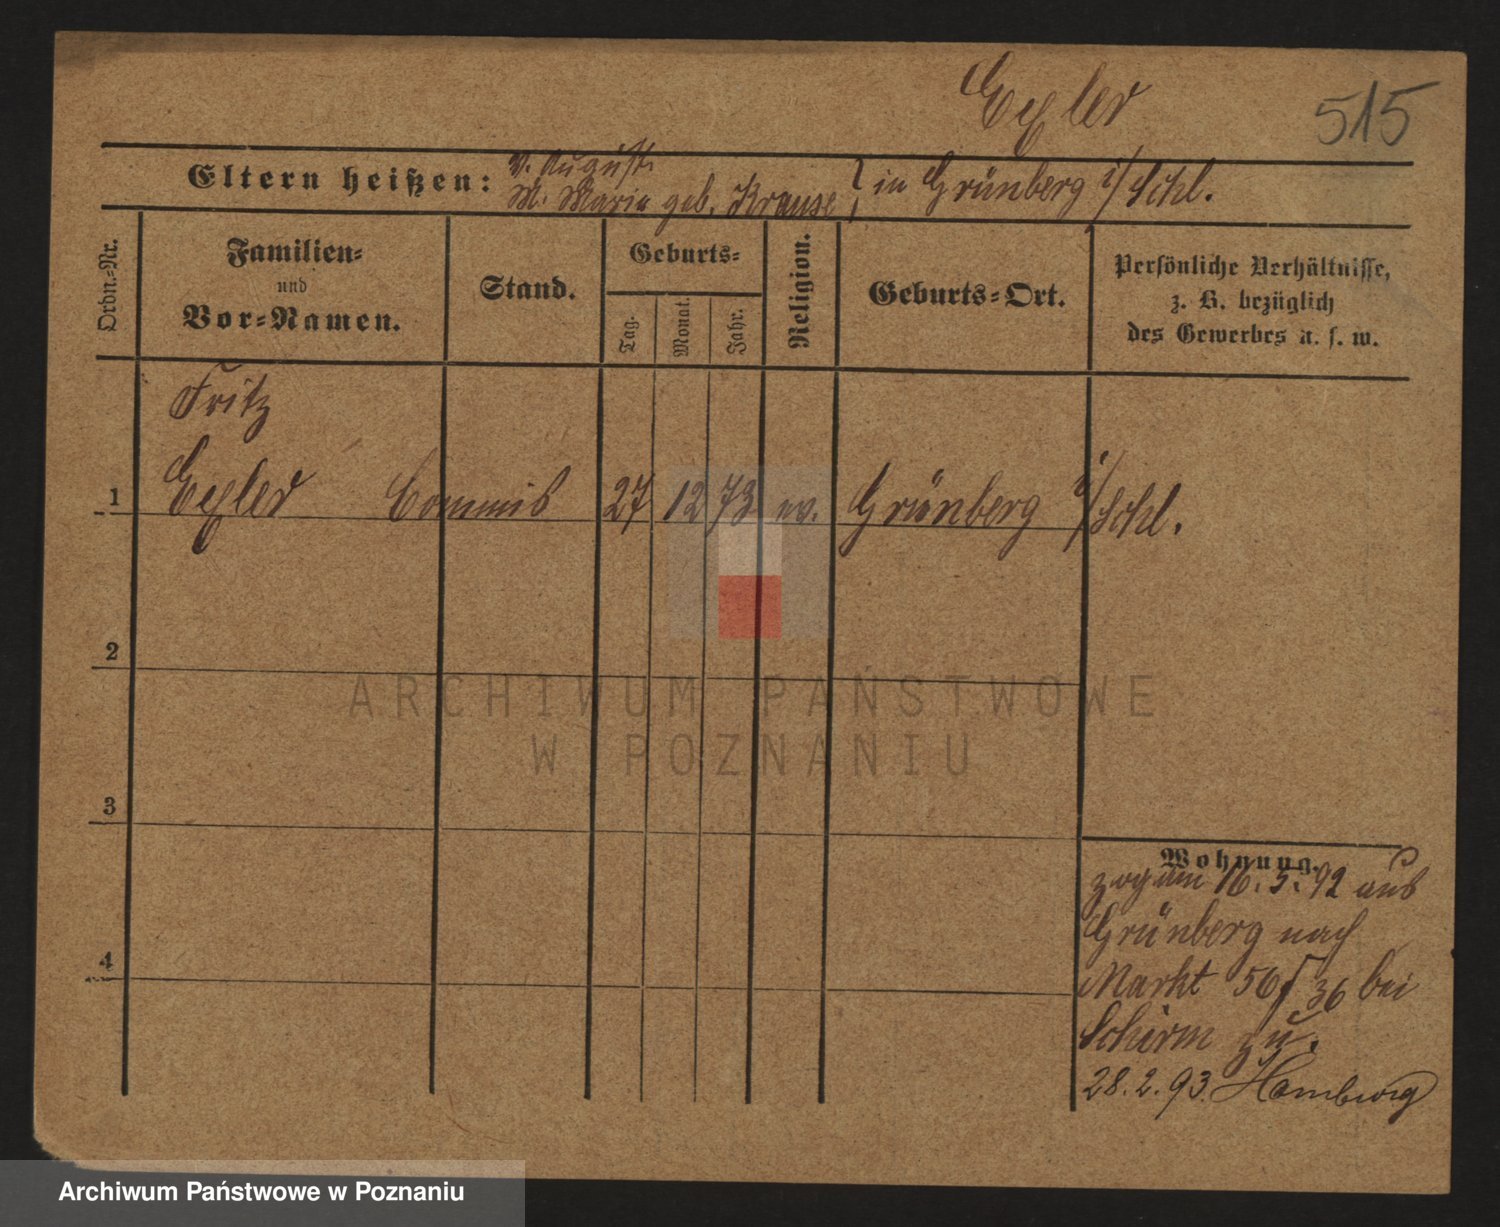 Exler
515
Eltern heißen: V. August
M. Marie geb. Krause } in Grünberg i/Schl.
Ordn.-Nr.
Familien-
und
Vor-Namen.
Stand.
Geburts-
Tag.
Monat.
Jahr.
Religion.
Geburts-Ort.
Persönliche Verhältnisse,
z. B. bezüglich
des Gewerbes u. s. w.
Fritz
1 Exler Commis 27 12 73 ev. Grünberg i/Schl.
2
3
4
Wohnung.
zog am 16. 5. 92 aus
Grünberg nach
Markt 56/36 bei
Schirm zu.
28. 2. 93. Hamburg
ARCHIWUM PAŃSTWOWE
W POZNANIU
Archiwum Państwowe w Poznaniu